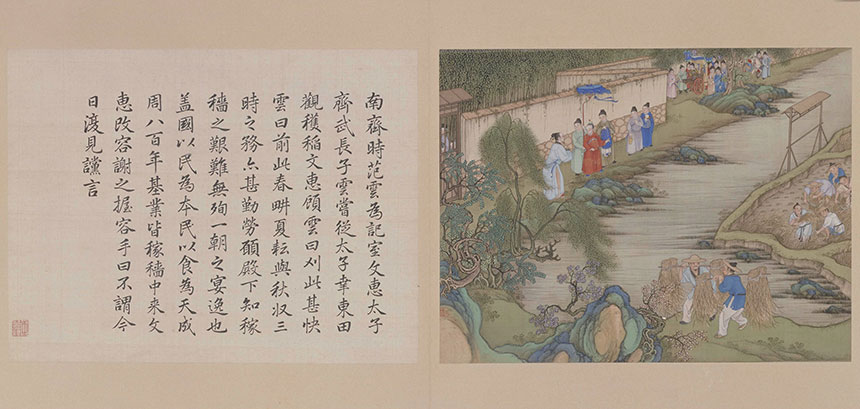 南齊時范雲為記室文惠太子
齊武長子雲嘗從太子幸東田
觀穫稻文惠顧雲曰刈此甚快
雲曰前此春畊夏耘與秋收三
時之務亦甚勤勞願殿下知稼
穡之艱難無殉一朝之宴逸也
蓋國以民為本民以食為天成
周八百年基業皆稼穡中来文
惠改容謝之握容手曰不謂今
日復見讜言